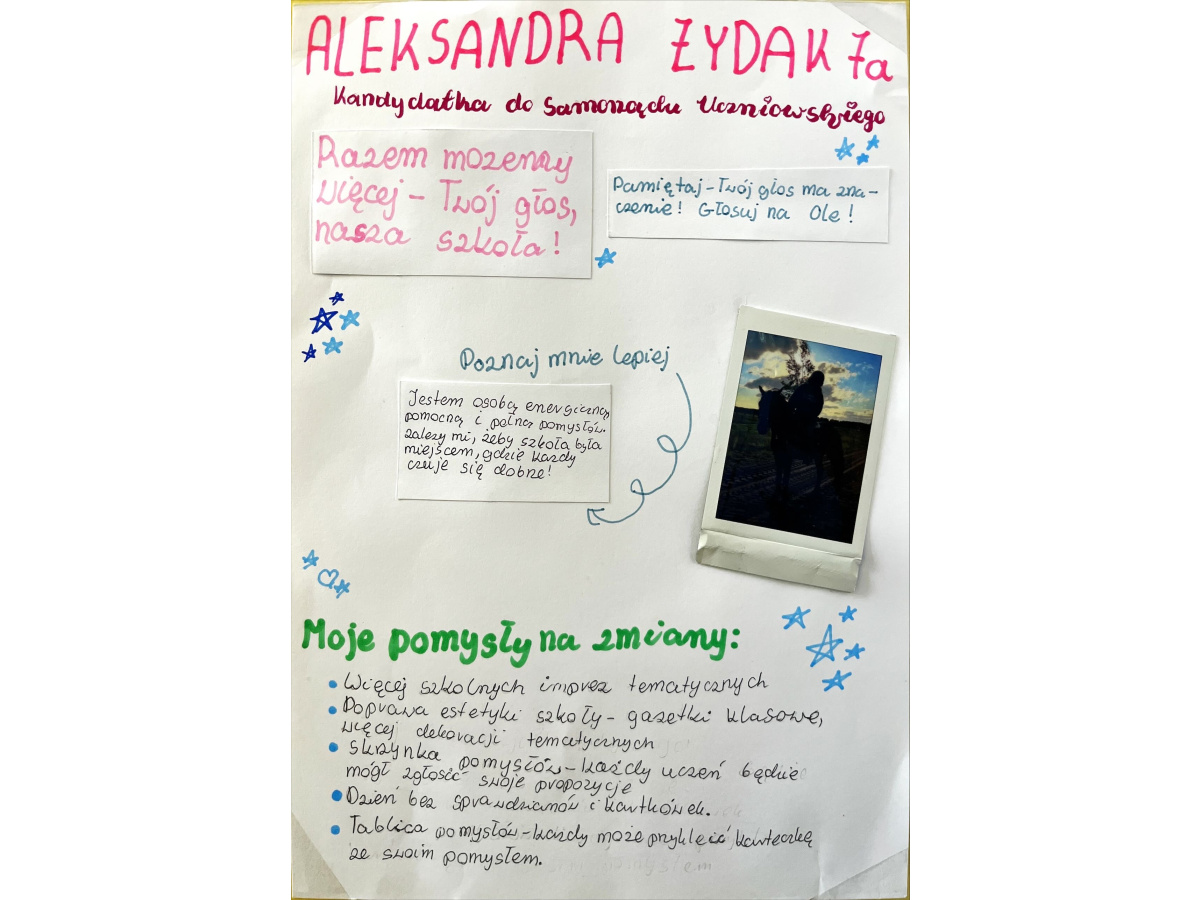 ALEKSANDRA ŻYDAK 7a
Kandydatka do Samorządu Uczniowskiego
Razem możemy
więcej – Twój głos,
nasza szkoła!
Pamiętaj – Twój głos ma zna-
czenie! Głosuj na Ole!
Poznaj mnie lepiej
Jestem osobą energiczną,
pomocną i pełną pomysłów.
Zależy mi, żeby szkoła była
miejscem, gdzie każdy
czuje się dobrze!
Moje pomysły na zmiany:
• Więcej szkolnych imprez tematycznych
• Poprawa estetyki szkoły – gazetki klasowe,
więcej dekoracji tematycznych
• Skrzynka pomysłów – każdy uczeń będzie
mógł zgłosić swoje propozycje
• Dzień bez sprawdzianów i kartkówek.
• Tablica pomysłów – każdy może przykleić karteczkę
ze swoim pomysłem.